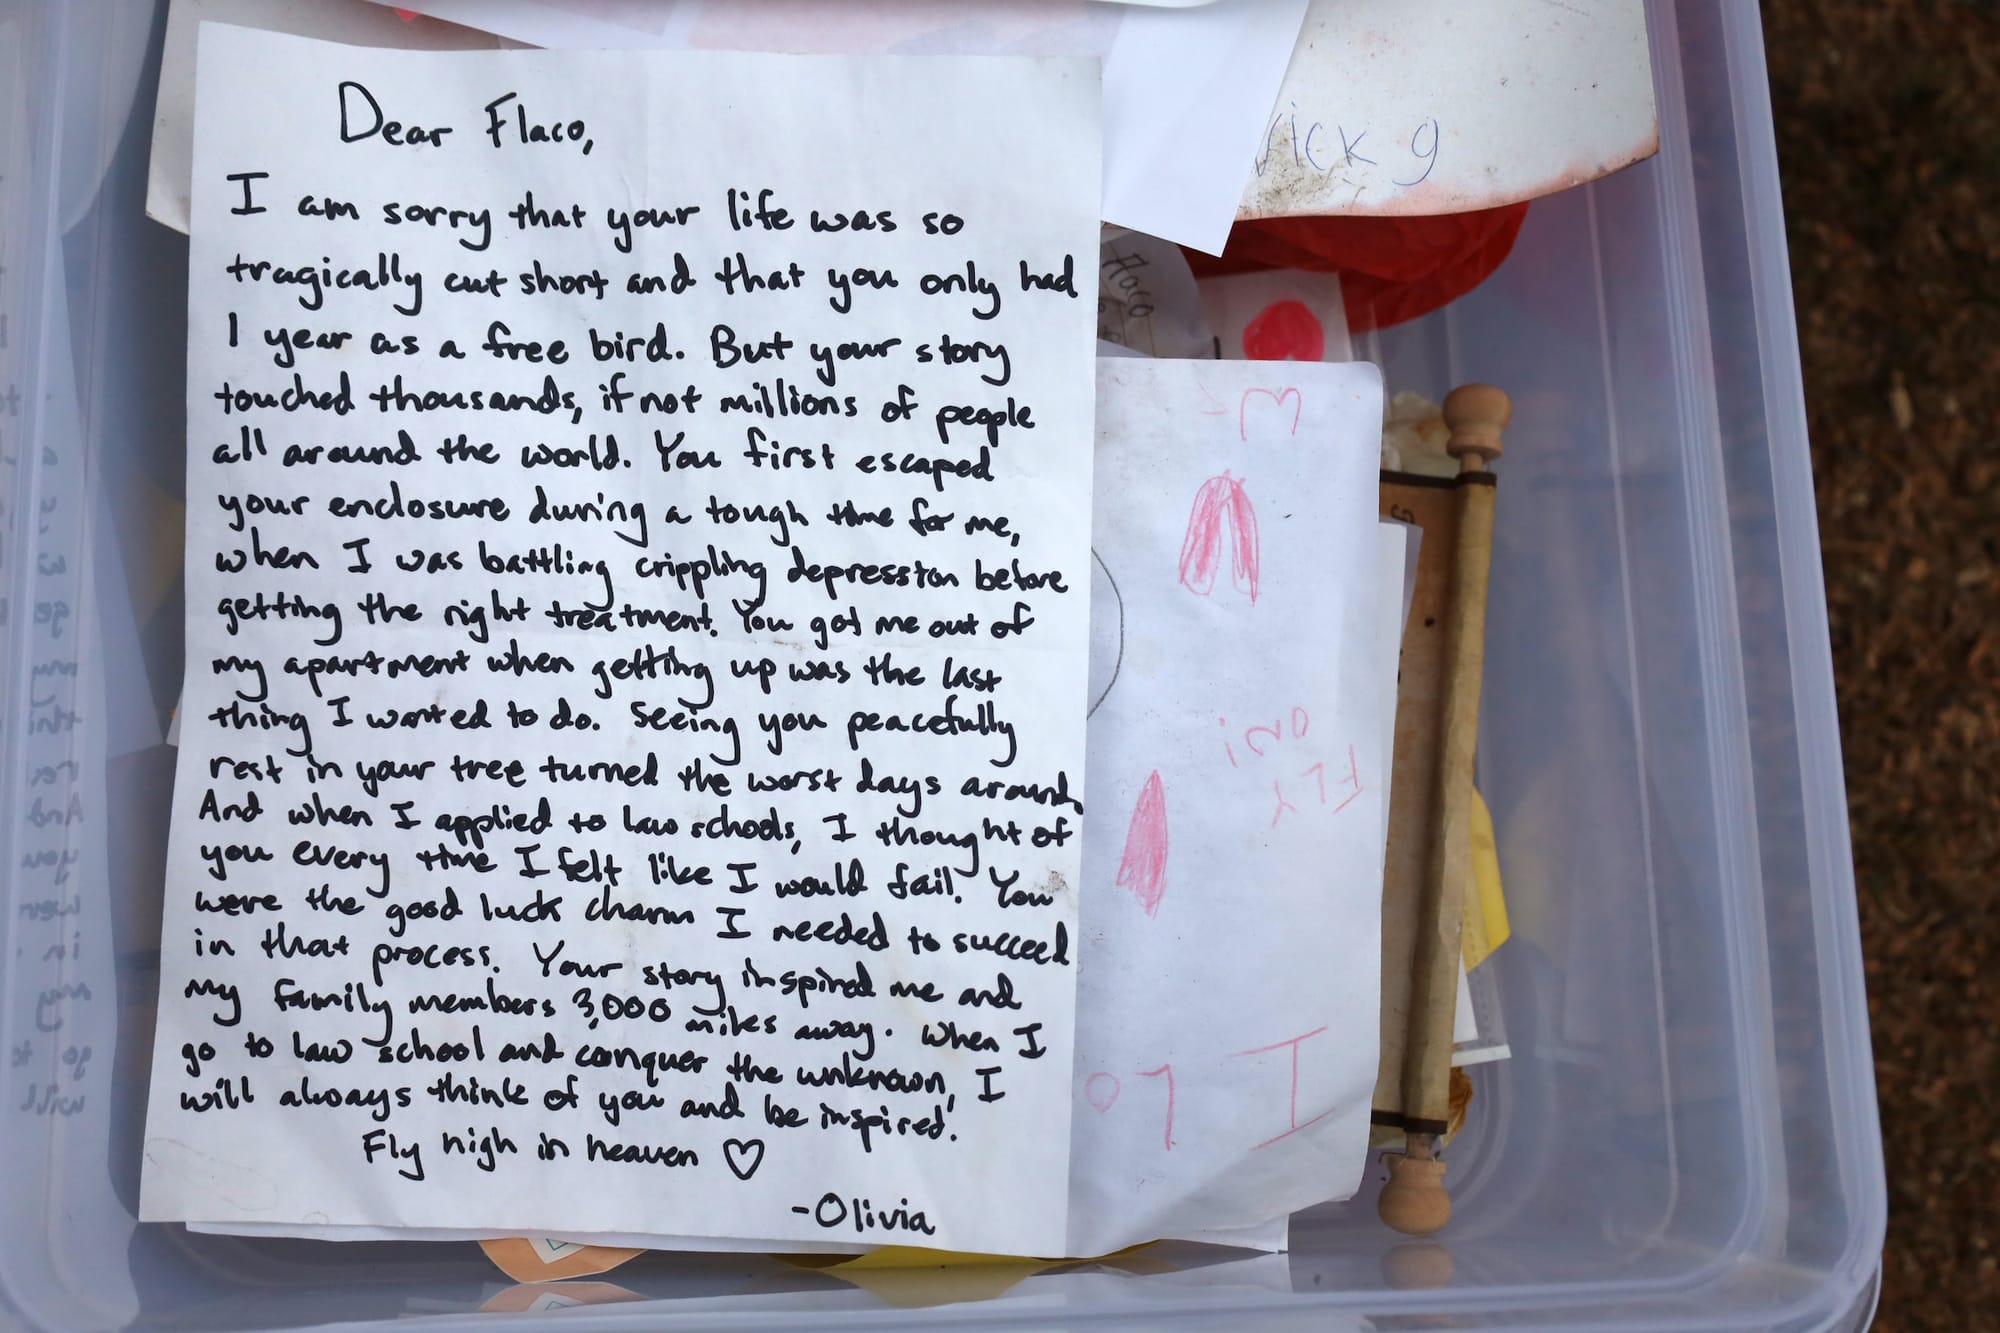 Dear Flaco,
I am sorry that your life was so
tragically cut short and that you only had
1 year as a free bird. But your story
touched thousands, if not millions of people
all around the world. You first escaped
your enclosure during a tough time for me,
when I was battling crippling depression before
getting the right treatment. You got me out of
my apartment when getting up was the last
thing I wanted to do. Seeing you peacefully
rest in your tree turned the worst days around.
And when I applied to law schools, I thought of
you every time I felt like I would fail. You
were the good luck charm I needed to succeed
in that process. Your story inspired me and
my family members 3,000 miles away. When I
go to law school and conquer the unknown, I
will always think of you and be inspired.
Fly high in heaven ♡
-Olivia
ick 9
Flaco
FLY
I Lo